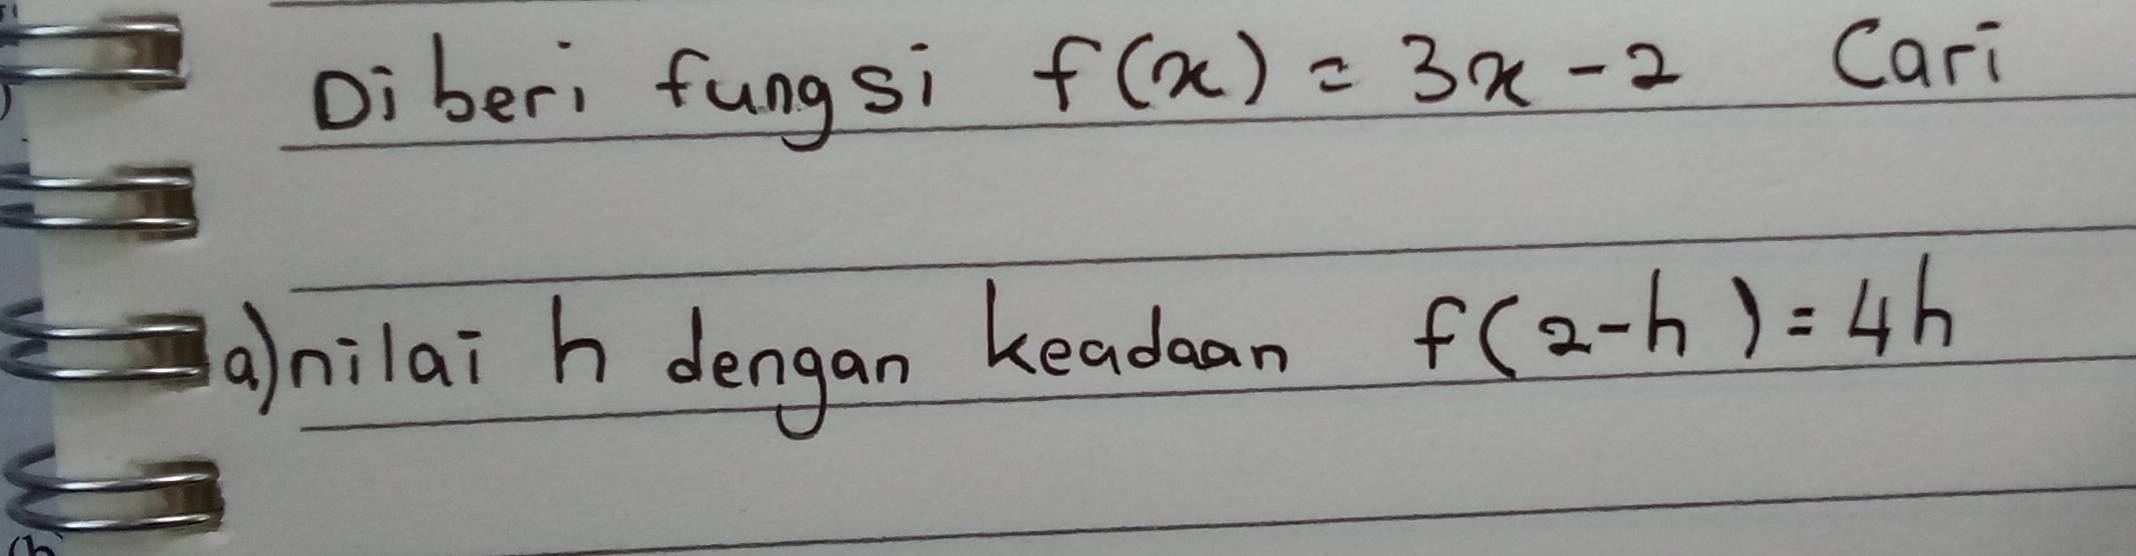 Diberi fungsi f(x) = 3x - 2 Cari
a) nilai h dengan keadaan f(2-h) = 4h